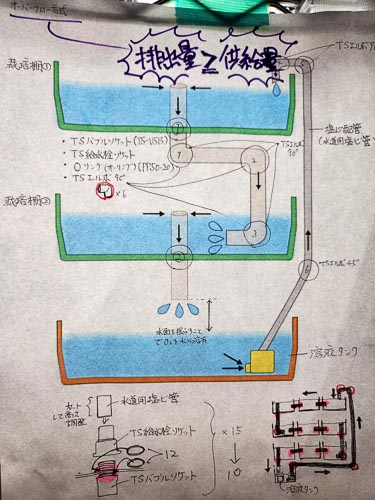 オーバーフロー方式
排出量≧供給量
TSエルボ9
栽培棚①
塩ビ配管
(水道用塩ビ管)
TSエルボ
90°
・TSバルブソケット(TS-VS13)
・TS給水栓ソケット
・Oリング(オーリング)(PP50-20)
・TSエルボ 90°
×6
1
2
3
栽培棚②
TSエルボ45°
水面を揺らすこと
でO₂を水に溶存
溶液タンク
カット
して高さ
調整
水道用塩ビ管
TS給水栓ソケット
12
TSバルブソケット
×15
↓
10
溶液タンク